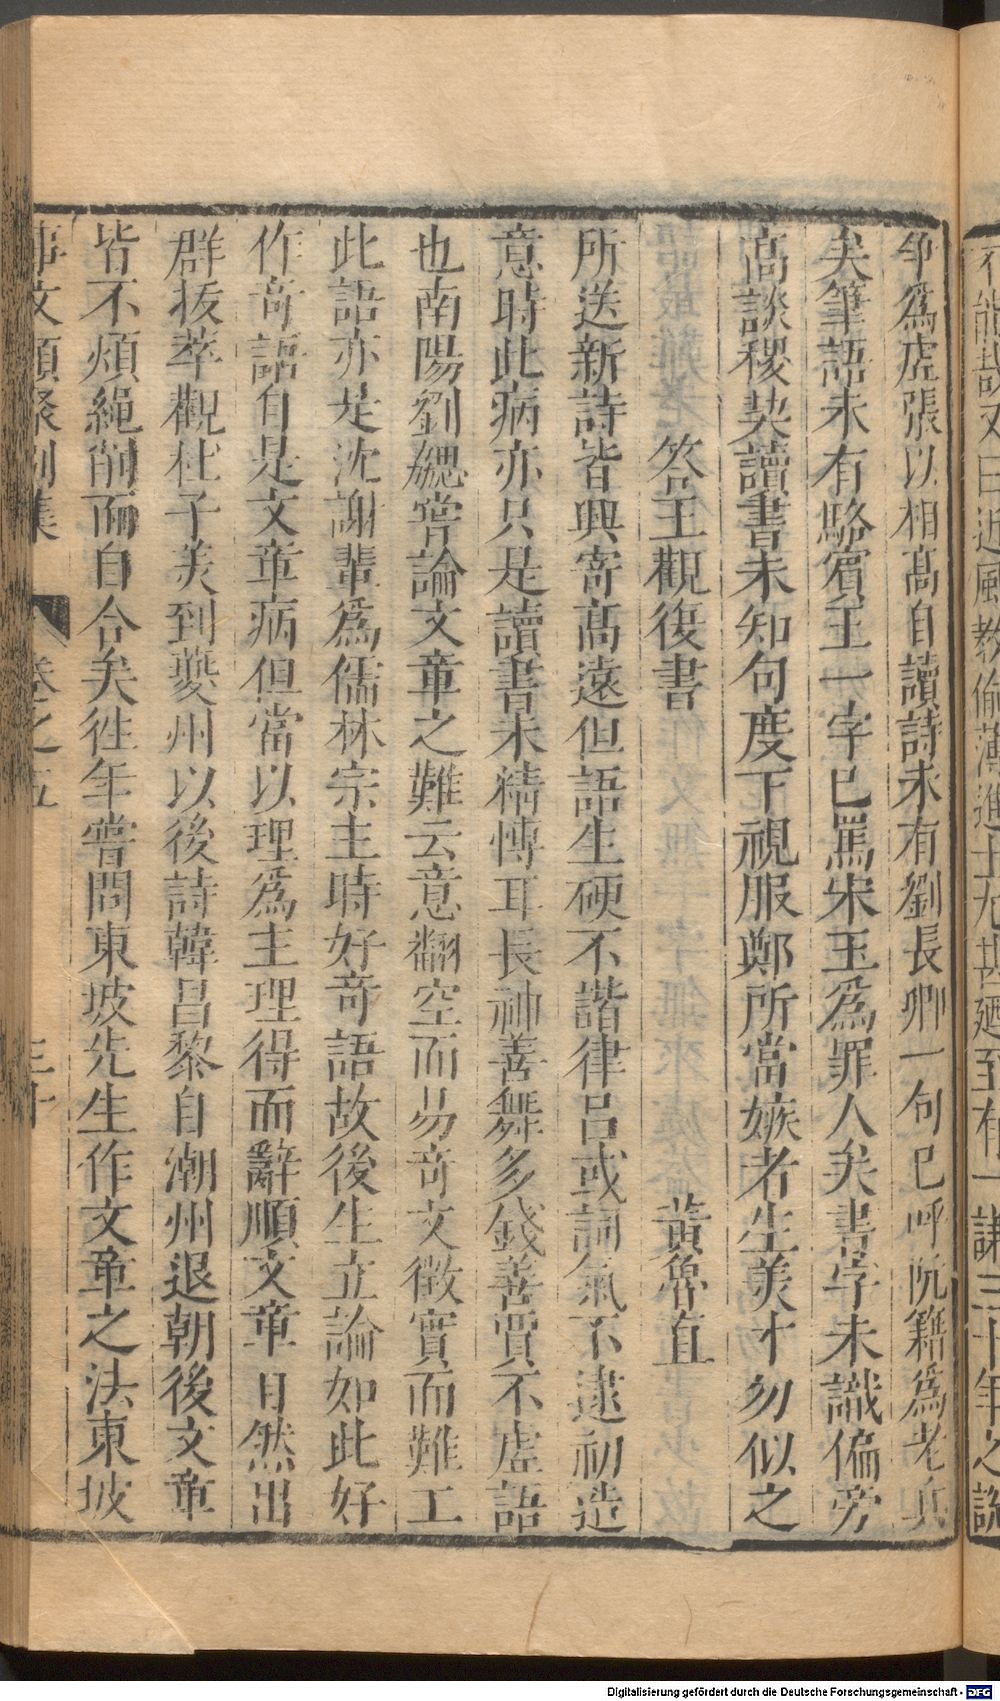 不能哉又曰近風教偷薄進士尤甚廼至有一謙三十年之說
爭爲虗張以相髙自讀詩未有劉長卿一句已呼阮籍爲老兵
矣筆語未有駱賓王一字已罵宋玉爲罪人矣書字未識偏旁
高談稷契讀書未知句度下視服鄭所當嫉者生美才勿似之
答王觀復書　黃魯直
所送新詩皆興寄髙遠但語生硬不諧律呂或詞氣不逮初造
意時此病亦只是讀書未精慱耳長袖善舞多錢善賈不虗語
也南陽劉勰嘗論文章之難云意翻空而易竒文徵實而難工
此語亦是沈謝輩爲儒林宗主時好竒語故後生立論如此好
作竒語自是文章病但當以理爲主理得而辭順文章自然出
群拔萃觀杜子美到夔州以後詩韓昌黎自潮州退朝後文章
皆不煩繩削而自合矣徃年嘗問東坡先生作文章之法東坡
事文類聚別集　卷之五　三十
Digitalisierung gefördert durch die Deutsche Forschungsgemeinschaft - DFG